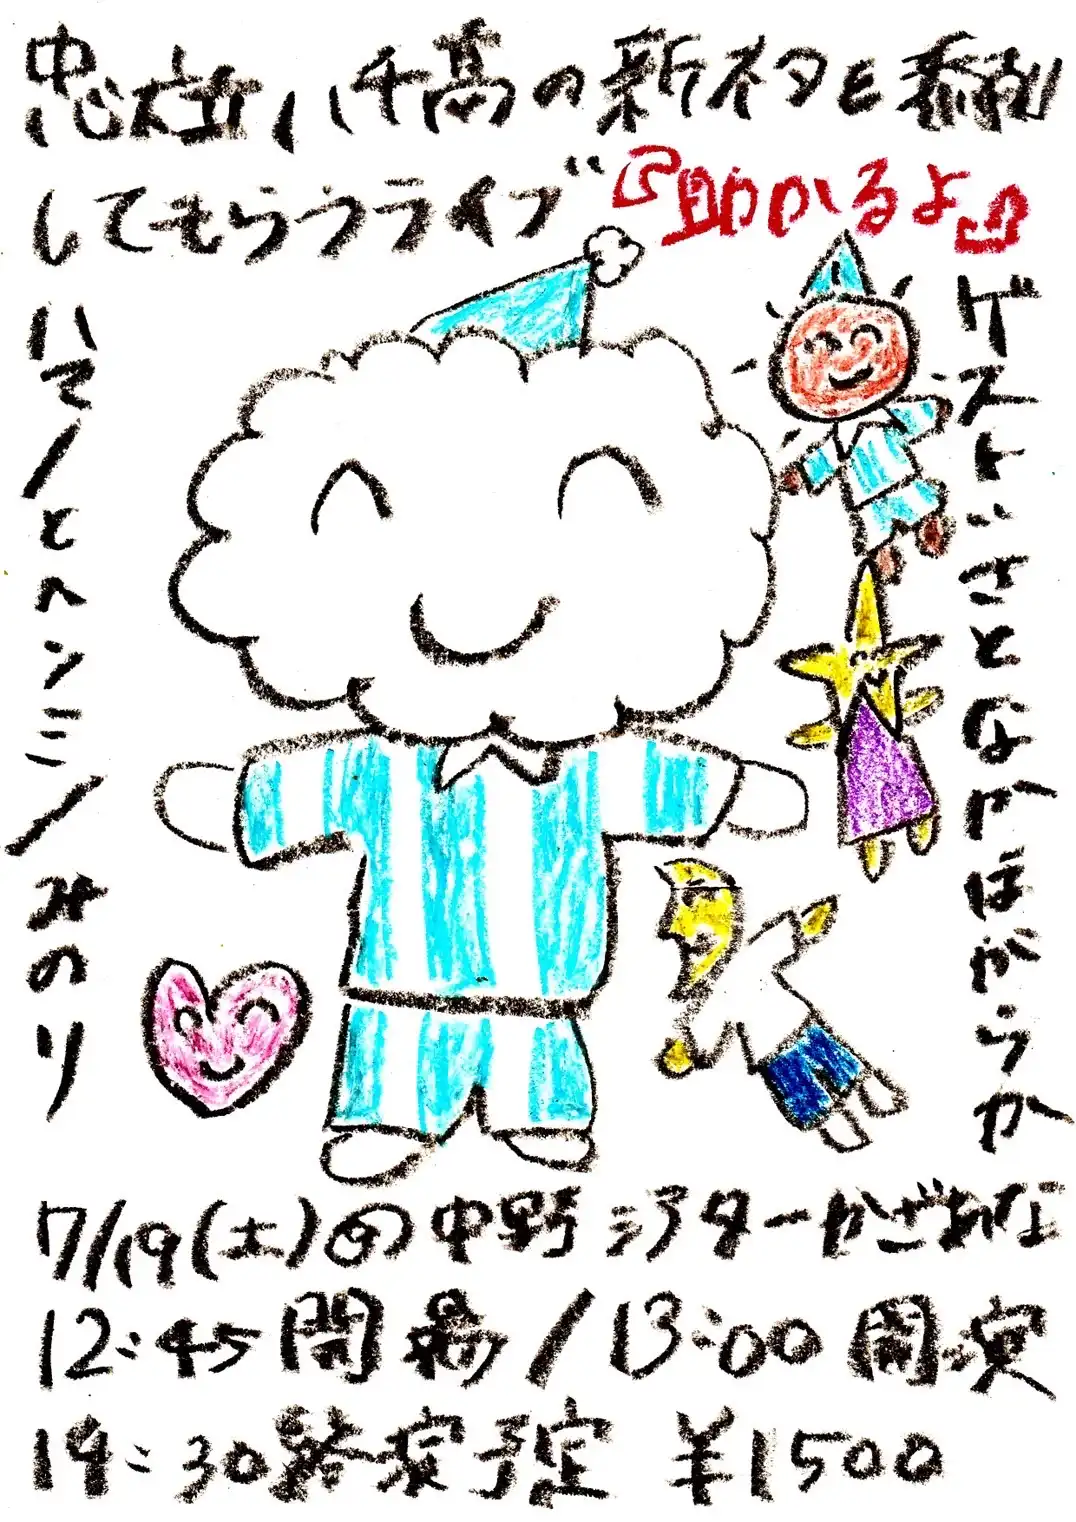 忠犬立ハチ高の新ネタを添削
してもらうライブ『助かるよ』
ゲスト:さとなかほがらか
ハマノとヘンミ/みのり
7/19(土)@中野シアターかざあな
12:45開場/13:00開演
14:30終演予定 ¥1500